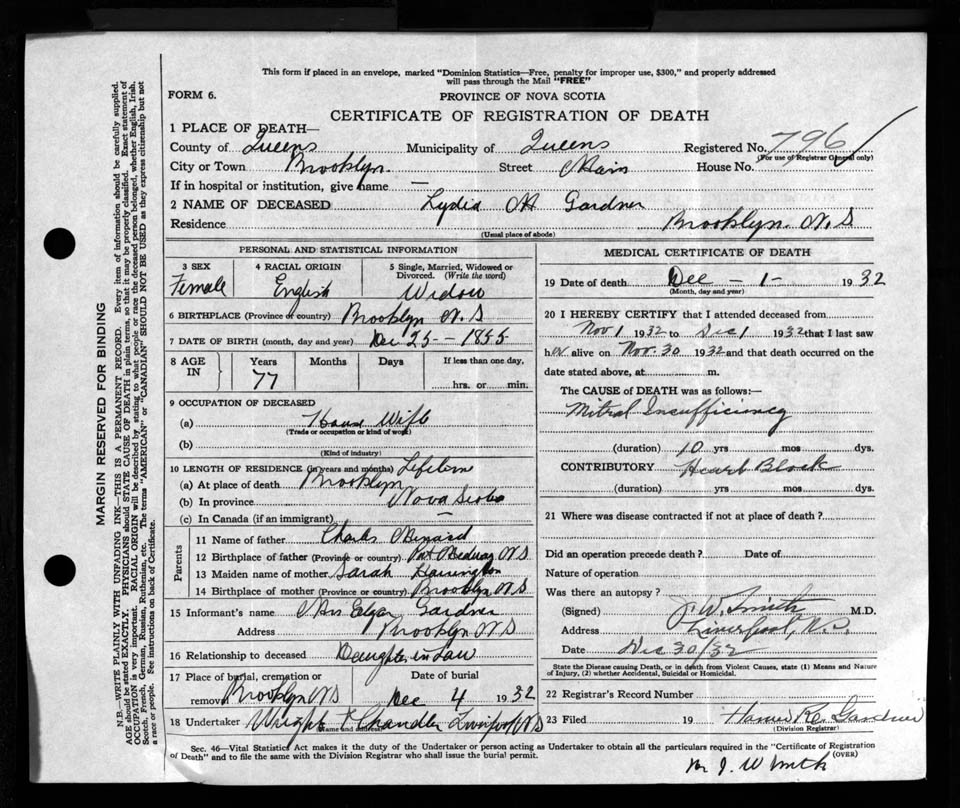 This form if placed in an envelope, marked "Dominion Statistics—Free, penalty for improper use, $300," and properly addressed
will pass through the Mail "FREE"
FORM 6.
PROVINCE OF NOVA SCOTIA
CERTIFICATE OF REGISTRATION OF DEATH
1 PLACE OF DEATH—
County of Queens Municipality of Queens Registered No. 796
(For use of Registrar General only)
City or Town Brooklyn. Street Main House No.
If in hospital or institution, give name —
2 NAME OF DECEASED Lydia H Gardner
Residence Brooklyn. N.S
(Usual place of abode)
PERSONAL AND STATISTICAL INFORMATION
3 SEX
Female
4 RACIAL ORIGIN
English
5 Single, Married, Widowed or
Divorced. (Write the word)
Widow
6 BIRTHPLACE (Province or country) Brooklyn N.S
7 DATE OF BIRTH (month, day and year) Dec 25 - 1855
8 AGE
IN
Years
77
Months
Days
If less than one day,
hrs. or min.
9 OCCUPATION OF DECEASED
(a) House Wife
(Trade or occupation or kind of work)
(b)
(Kind of industry)
10 LENGTH OF RESIDENCE (in years and months) Lifetime
(a) At place of death Brooklyn
(b) In province Nova Scotia
(c) In Canada (if an immigrant) —
Parents
11 Name of father Charles
12 Birthplace of father (Province or country) Port Medway NS
13 Maiden name of mother Sarah Harrington
14 Birthplace of mother (Province or country) Brooklyn NS
15 Informant's name Mrs Edgar Gardner
Address Brooklyn NS
16 Relationship to deceased Daughter in Law
17 Place of burial, cremation or
removal Brooklyn NS
Date of burial
Dec 4 1932
18 Undertaker Wright & Chandler Liverpool NS
Name and address
MEDICAL CERTIFICATE OF DEATH
19 Date of death Dec - 1 - 1932
(Month, day and year)
20 I HEREBY CERTIFY that I attended deceased from
Nov 1 1932 to Dec 1 1932 that I last saw
her alive on Nov. 30 1932 and that death occurred on the
date stated above, at m.
The CAUSE of DEATH was as follows:—
Mitral Insufficiency
(duration) 10 yrs mos dys.
CONTRIBUTORY Heart Block
(duration) yrs mos dys.
21 Where was disease contracted if not at place of death?
Did an operation precede death? Date of
Nature of operation
Was there an autopsy?
(Signed) J. W. Smith M.D.
Address Liverpool, N.S.
Date Dec 30/32
State the Disease causing Death, or in death from Violent Causes, state (1) Means and Nature
of Injury, (2) whether Accidental, Suicidal or Homicidal.
22 Registrar's Record Number
23 Filed 19 Gardner
(Division Registrar)
Sec. 46—Vital Statistics Act makes it the duty of the Undertaker or person acting as Undertaker to obtain all the particulars required in the "Certificate of Registration
of Death" and to file the same with the Division Registrar who shall issue the burial permit.
(OVER)
J. W Smith
MARGIN RESERVED FOR BINDING
N.B.—WRITE PLAINLY WITH UNFADING INK—THIS IS A PERMANENT RECORD. Every item of information should be carefully supplied.
AGE should be stated EXACTLY. PHYSICIANS should STATE CAUSE OF DEATH in plain terms, so that it may be properly classified. Exact statement of
OCCUPATION is very important. RACIAL ORIGIN will be described by stating to what people or race the deceased person belonged, whether English, Irish,
Scotch, French, German, Russian, Ruthenian, etc. The terms "AMERICAN" or "CANADIAN" SHOULD NOT BE USED as they express citizenship but not
a race or people. See instructions on back of Certificate.